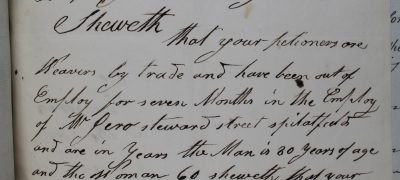 Sheweth
that your petioners are
Weavers by trade and have been out of
Employ for seven Months in the Employ
of Mr Sero steward street spitalfields
and are in Years the Man is 80 Years of age
and the Woman 60 sheweth that your